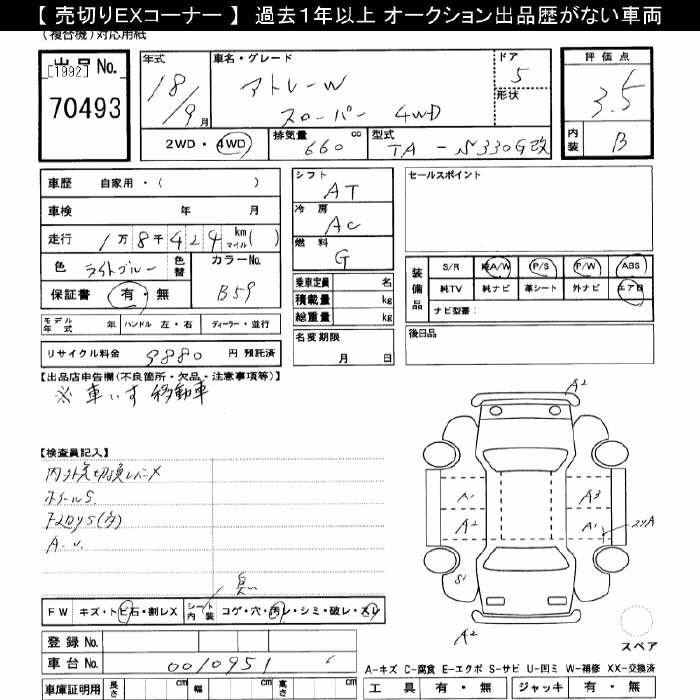 【 売切りEXコーナー 】 過去1年以上 オークション出品歴がない車両
(複合機)対応用紙
出品No. [1992]
70493
年式 18/9月
車名・グレード アトレーW スローパー 4WD
ドア 5
形状
評価点 3.5
内装 B
2WD・4WD
排気量 660 cc
型式 TA - S330G改
車歴 自家用・( )
車検 年 月
走行 1万8千429 km マイル( )
色 ライトブルー 色替
カラーNo. B59
保証書 有・無
シフト AT
冷房 AC
燃料 G
乗車定員 名
積載量 kg
総重量 kg
名変期限 月 日
セールスポイント
装備品 S/R 純A/W P/S P/W ABS
純TV 純ナビ 革シート 外ナビ エアB
ナビ型番:
後日品
モデル年式 年 ハンドル 左・右 ディーラー・並行
リサイクル料金 9880 円 預託済
【出品店申告欄(不良箇所・欠品・注意事項等)】
※ 車いす 移動車
【検査員記入】
内外気切換レバーX
ホイールS
A.U.
臭い
FW キズ・トビ石・割レX
シート内装 コゲ・穴・汚レ・シミ・破レ・スレ
登録No.
車台No. 0010951
車庫証明用 長さ cm 幅 cm 高さ cm
A2
A1
A2
A3
A1
S1
A2
スペア
A-キズ C-腐食 E-エクボ S-サビ U-凹ミ W-補修 XX-交換済
工具 有・無 ジャッキ 有・無